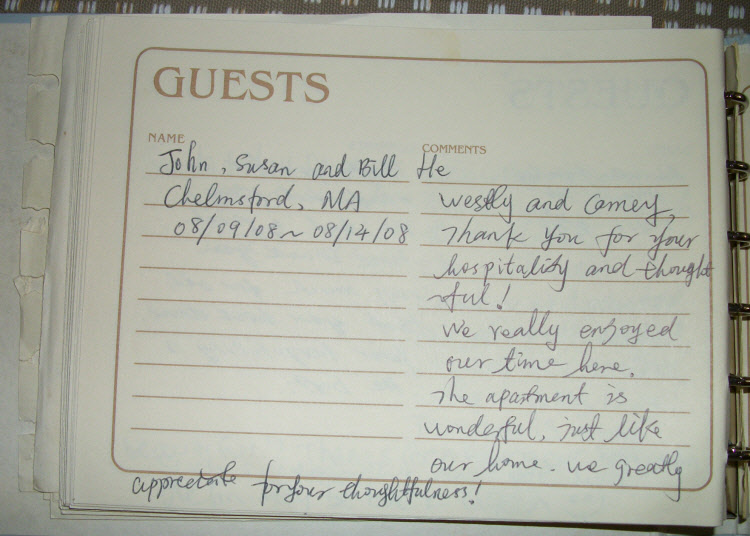 GUESTS
NAME
COMMENTS
John, Susan and Bill He
Chelmsford, MA
08/09/08 ~ 08/14/08
Westly and Comey,
Thank you for your
hospitality and thought
-ful!
We really enjoyed
our time here.
The apartment is
wonderful, just like
our home. we greatly
appreciate for your thoughtfulness!